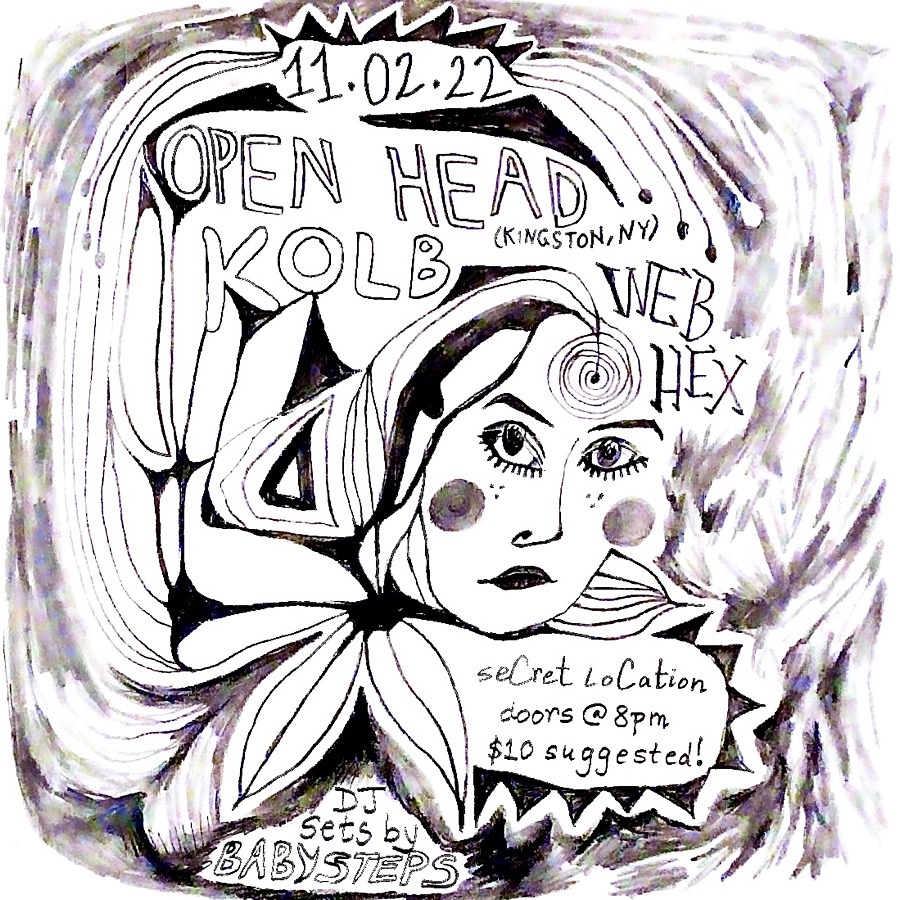 11.02.22
OPEN HEAD
(KINGSTON, NY)
KOLB
WEB
HEX
seCret LoCation
doors @ 8pm
$10 suggested!
DJ
sets by
BABYSTEPS